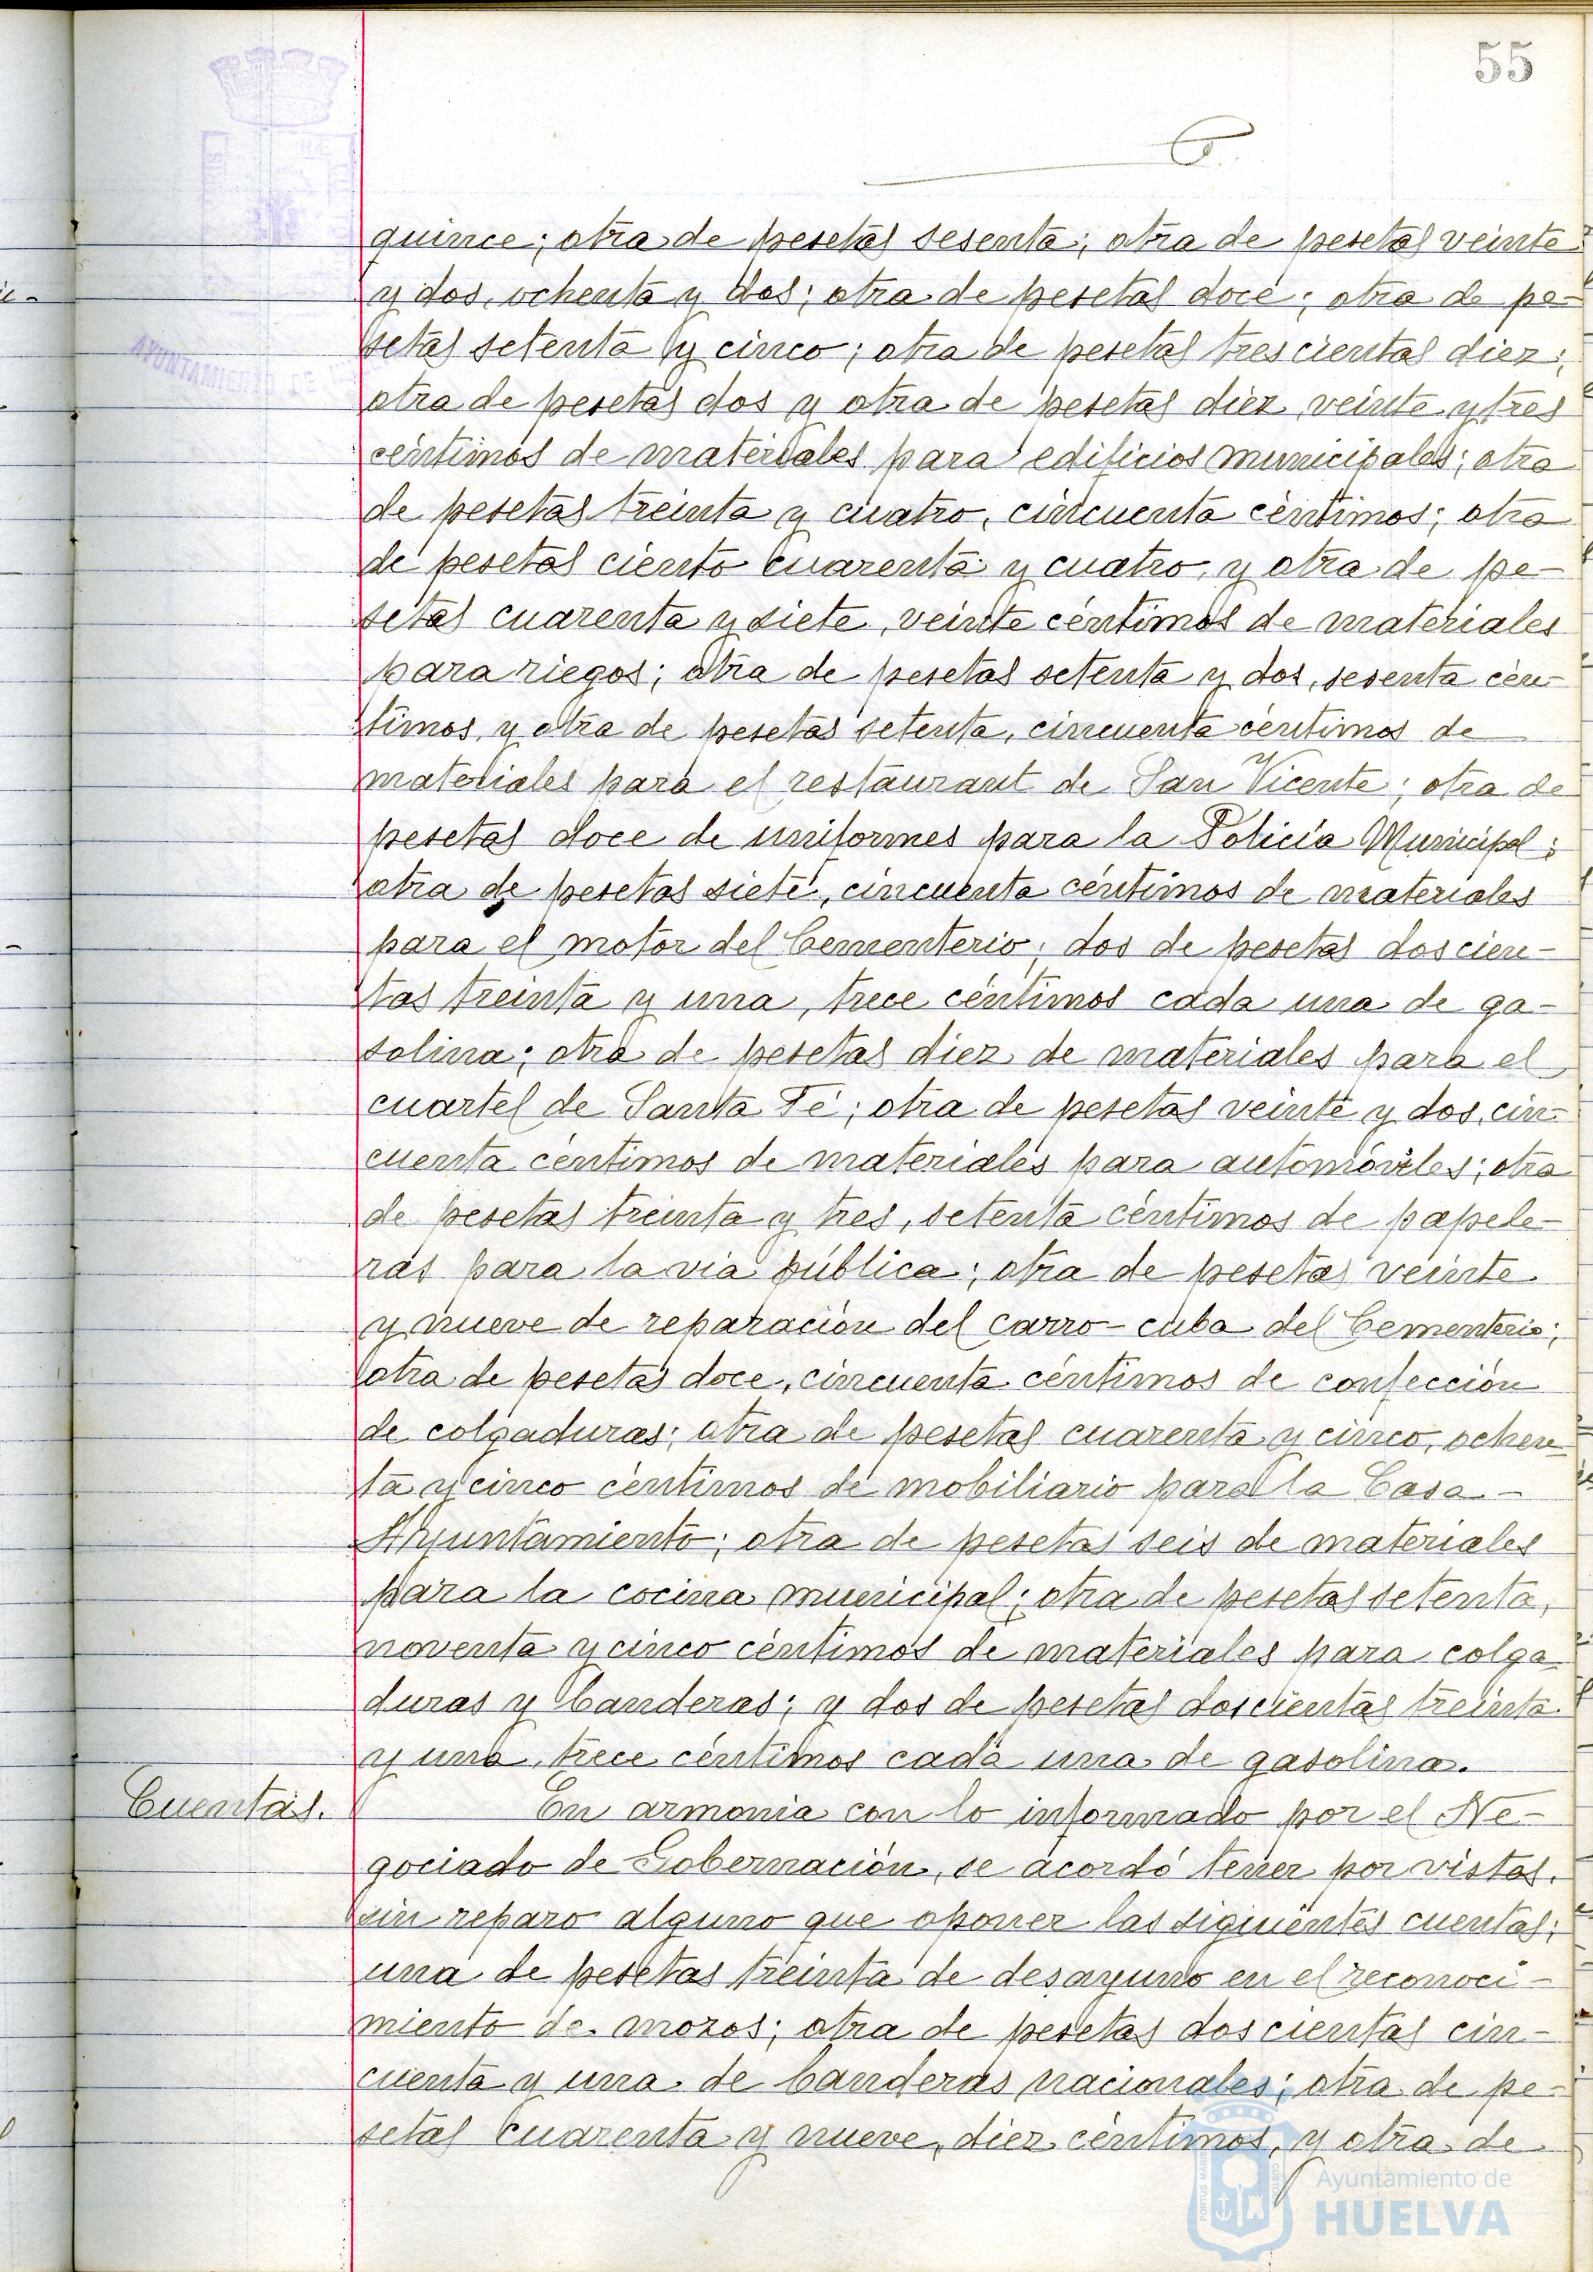 55
quince; otra de pesetas sesenta; otra de pesetas veinte
y dos, ochenta y dos; otra de pesetas doce; otra de pe-
setas setenta y cinco; otra de pesetas trescientas diez;
otra de pesetas dos y otra de pesetas diez, veinte y tres
céntimos de materiales para edificios municipales; otra
de pesetas treinta y cuatro, cincuenta céntimos; otra
de pesetas ciento cuarenta y cuatro, y otra de pe-
setas cuarenta y siete, veinte céntimos de materiales
para riegos; otra de pesetas setenta y dos, sesenta cén-
timos, y otra de pesetas setenta, cincuenta céntimos de
materiales para el restaurant de San Vicente; otra de
pesetas doce de uniformes para la Policía Municipal;
otra de pesetas siete, cincuenta céntimos de materiales
para el motor del Cementerio; dos de pesetas doscien-
tas treinta y una, trece céntimos cada una de ga-
solina; otra de pesetas diez de materiales para el
cuartel de Santa Fé; otra de pesetas veinte y dos, cin-
cuenta céntimos de materiales para automóviles; otra
de pesetas treinta y tres, setenta céntimos de papele-
ras para la via pública; otra de pesetas veinte
y nueve de reparación del carro-cuba del Cementerio;
otra de pesetas doce, cincuenta céntimos de confección
de colgaduras; otra de pesetas cuarenta y cinco, ochen-
ta y cinco céntimos de mobiliario para la Casa-
Ayuntamiento; otra de pesetas seis de materiales
para la cocina municipal; otra de pesetas setenta,
noventa y cinco céntimos de materiales para colga-
duras y banderas; y dos de pesetas doscientas treinta
y una, trece céntimos cada una de gasolina.
Cuentas. En armonia con lo informado por el Ne-
gociado de Gobernación, se acordó tener por vistas,
sin reparo alguno que oponer las siguientes cuentas;
una de pesetas treinta de desayuno en el reconoci-
miento de mozos; otra de pesetas doscientas cin-
cuenta y una de banderas nacionales; otra de pe-
setas cuarenta y nueve, diez céntimos, y otra de
AYUNTAMIENTO DE
Ayuntamiento de
HUELVA